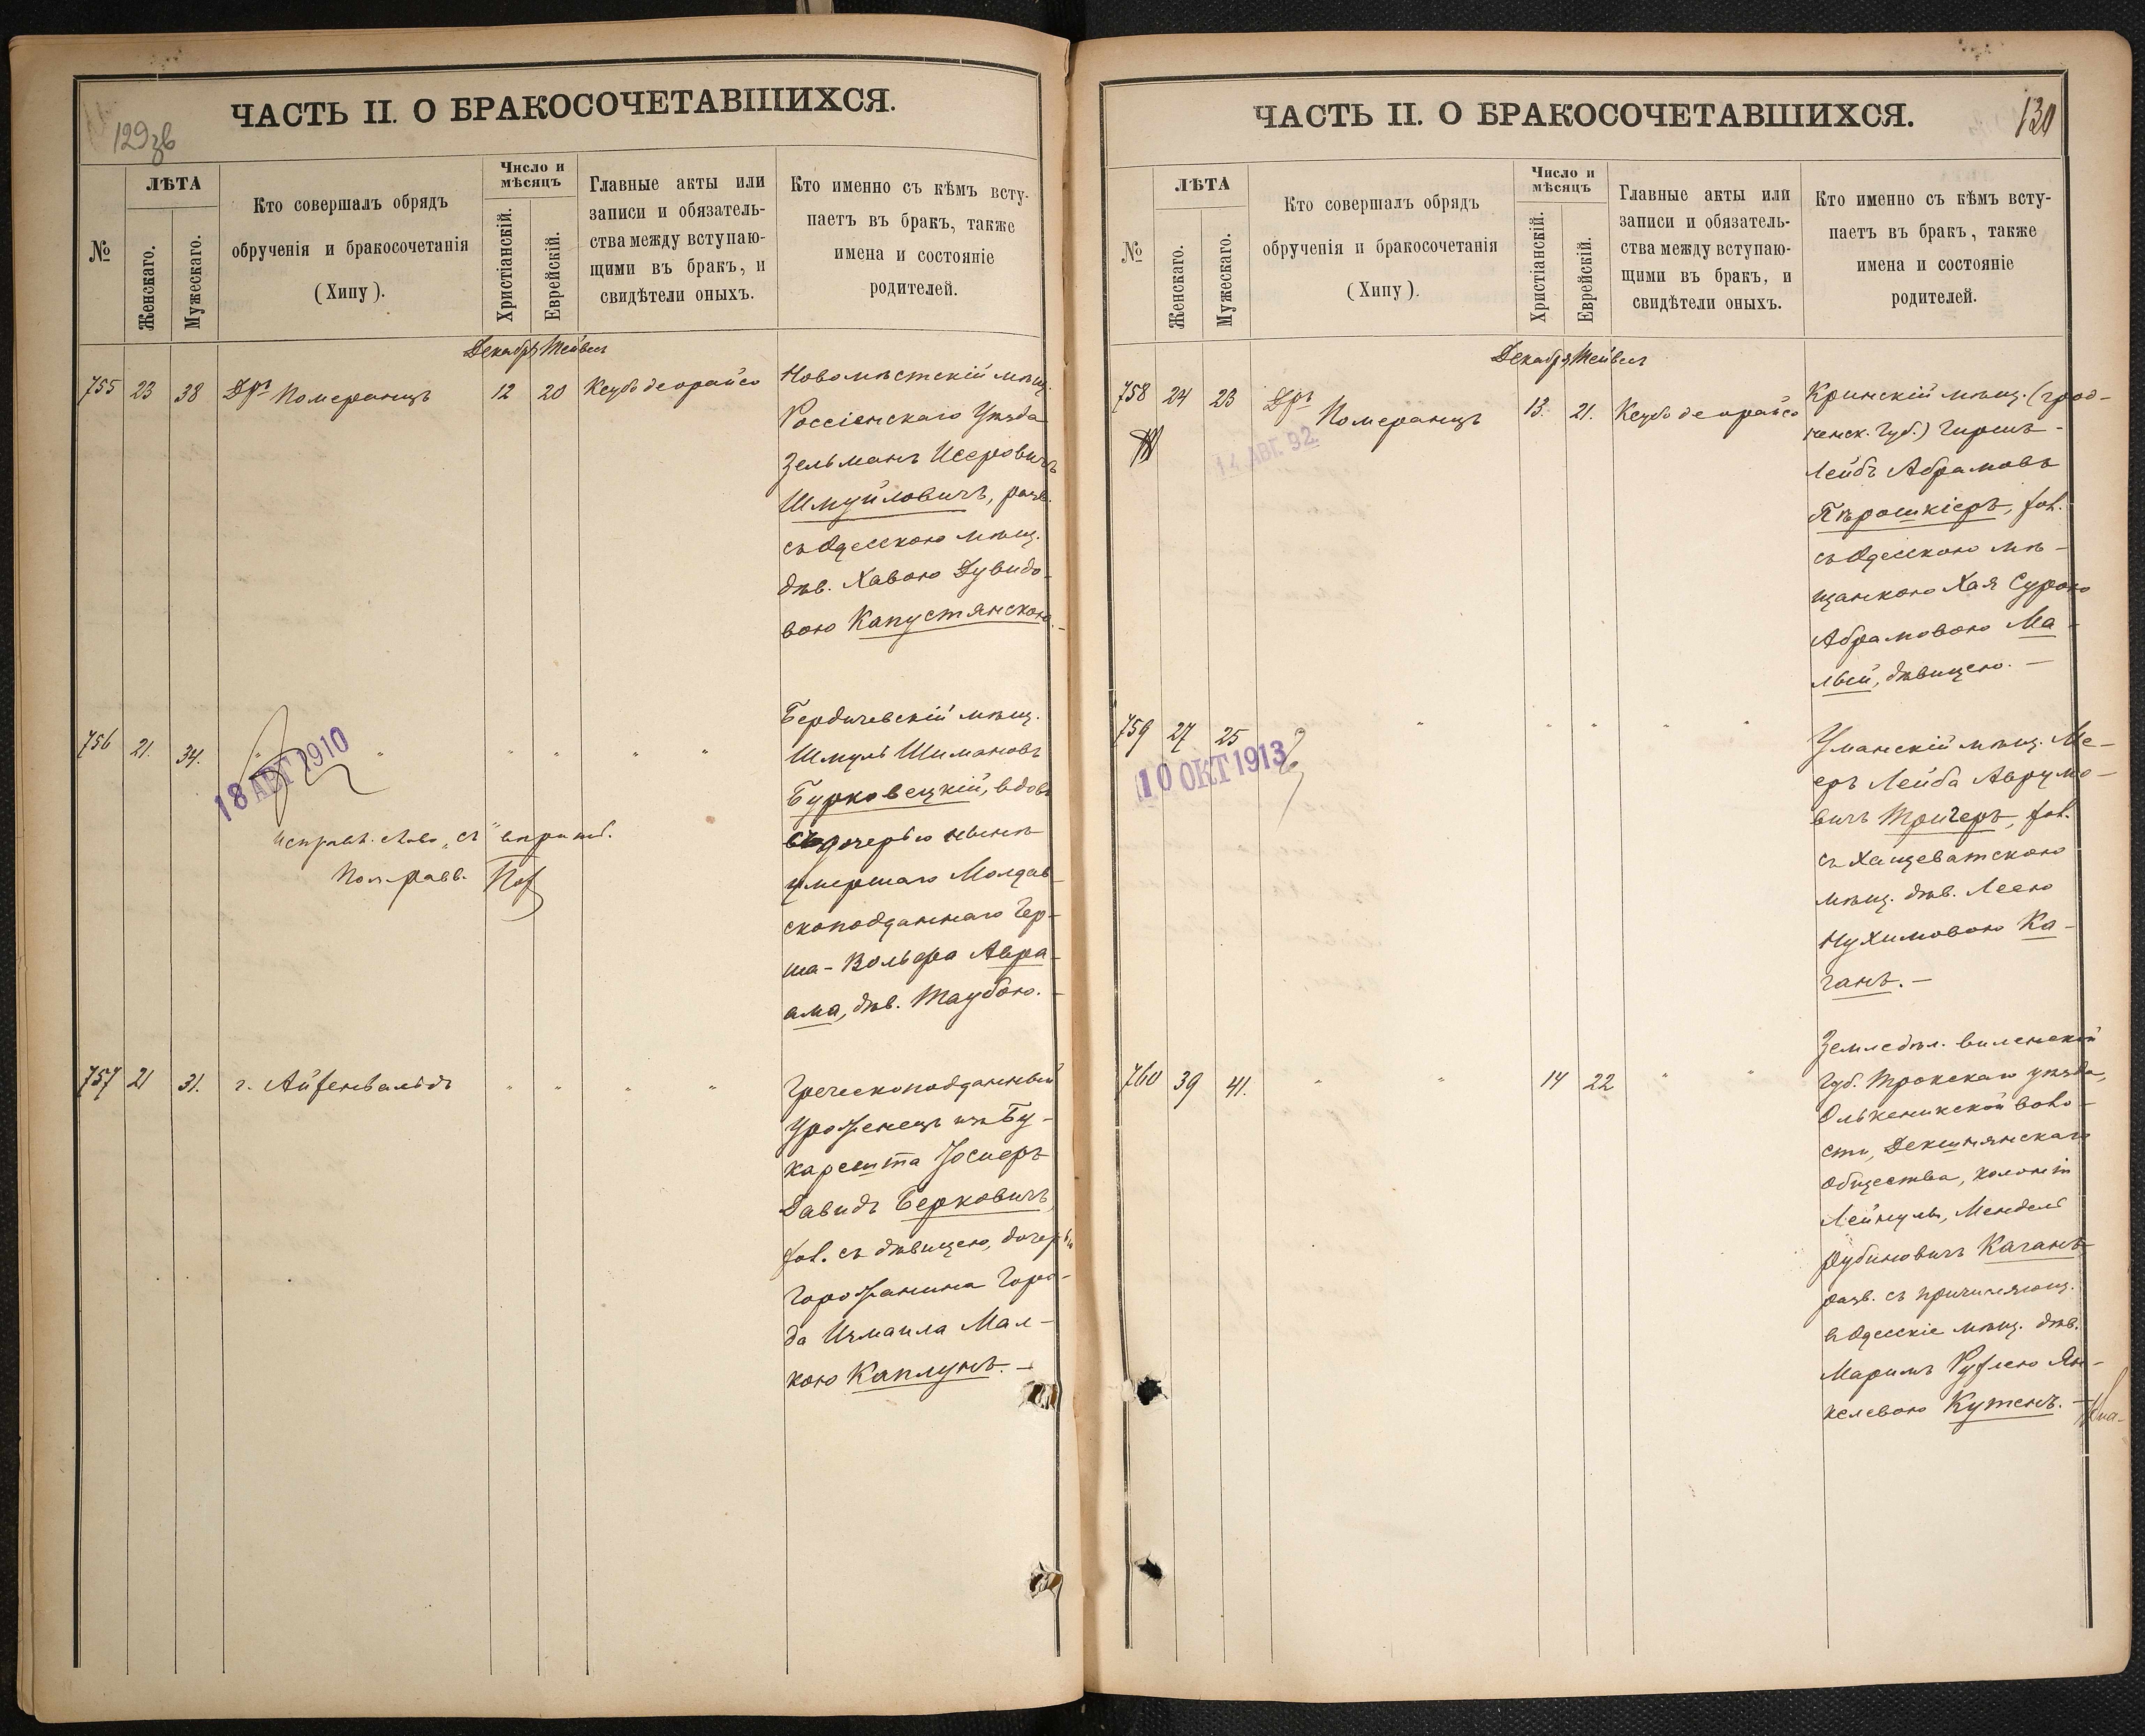 ЧАСТЬ II. О БРАКОСОЧЕТАВШИХСЯ.
129зв
№
ЛѢТА
Женскаго.
Мужескаго.
Кто совершалъ обрядъ
обрученія и бракосочетанія
(Хипу).
Число и
мѣсяцъ
Христіанскій.
Еврейскій.
Главные акты или
записи и обязатель-
ства между вступаю-
щими въ бракъ, и
свидѣтели оныхъ.
Кто именно съ кѣмъ всту-
паетъ въ бракъ, также
имена и состояніе
родителей.
Декабрь Тейвес
755 23 38 Дръ Померанцъ 12 20 Ксубо деорайсо
Новомѣстскій мѣщ.
Россіенскаго Уѣзда
Зельманъ Исеровичъ
Шмуйловичъ, разв.
съ Одесскою мѣщ.
дѣв. Хавою Дувидо-
вою Капустянскою.-
756 21. 34. " " " " " "
18 АВГ 1910
Бердичевскій мѣщ.
Шмуль Шимановъ
Бурковецкій, вдов.
съ дочерью нынѣ
умершаго Молдав-
скоподданнаго Гер-
ша-Вольфа Авра-
ама, дѣв. Таубою.-
исправл. слово „съ" вѣрит.
Пом. равв.
757 21 31. г. Айзенвальдъ " " " "
Греческоподданный
Уроженецъ изъ Бу-
карешта Йосперъ
Давидъ Берковичъ,
хол. съ дѣвицею, дочерью
Горожанина Горо-
да Измаила Мал-
кою Каплунъ.-
ЧАСТЬ II. О БРАКОСОЧЕТАВШИХСЯ.
130
№
ЛѢТА
Женскаго.
Мужескаго.
Кто совершалъ обрядъ
обрученія и бракосочетанія
(Хипу).
Число и
мѣсяцъ
Христіанскій.
Еврейскій.
Главные акты или
записи и обязатель-
ства между вступаю-
щими въ бракъ, и
свидѣтели оныхъ.
Кто именно съ кѣмъ всту-
паетъ въ бракъ, также
имена и состояніе
родителей.
Декабрь Тейвес
758 24 23 Дръ Померанцъ 13. 21. Ксубо деорайсо
14 АВГ. 92
Кринскій мѣщ. (грод-
ненск. Губ.) Гиршъ-
Лейбъ Абрамовъ
Пѣрошкіеръ, хол.
съ Одесскою мѣ-
щанкою Хая Сурою
Абрамовою Ма-
лвей, дѣвицею.-
759 27 25 " " " " "
10 ОКТ 1913
Уманскій мѣщ. Ме-
еръ Лейба Аврумо-
вичъ Тригеръ, хол.
съ Хащеватскою
мѣщ. дѣв. Леею
Нухимовою Ка-
ганъ.-
760 39 41. " " 14 22 " "
Земледѣл. виленской
Губ. Трокскаго уѣзда,
Олькеникской воло-
сти, Декшнянскаго
общества, колоніи
Лейпуны, Мендель
Рубиновичъ Каганъ,
разв. съ причисляющ.
въ Одесскіе мѣщ. дѣв.
Маримъ Рузлею Ян-
келевою Кутенъ.-